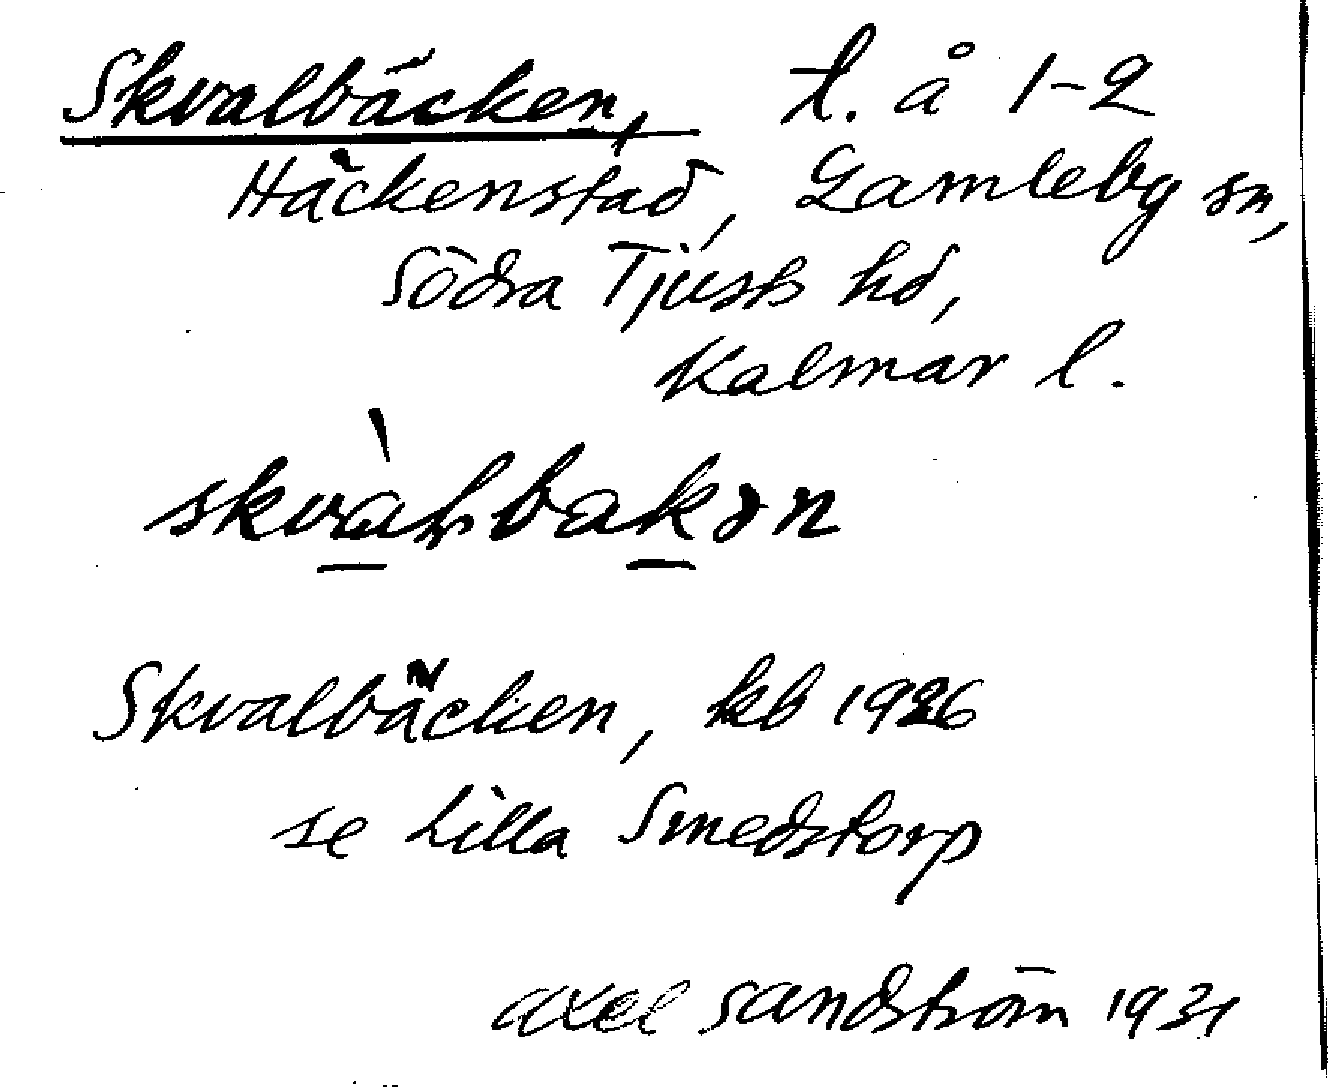 Skvalbäcken, t. å 1-2
Häckenstad, Gamleby sn,
Södra Tjusts hd,
Kalmar l.
Skvalbäcken, kb 1926
se Lilla Smedstorp
axel sandström 1931